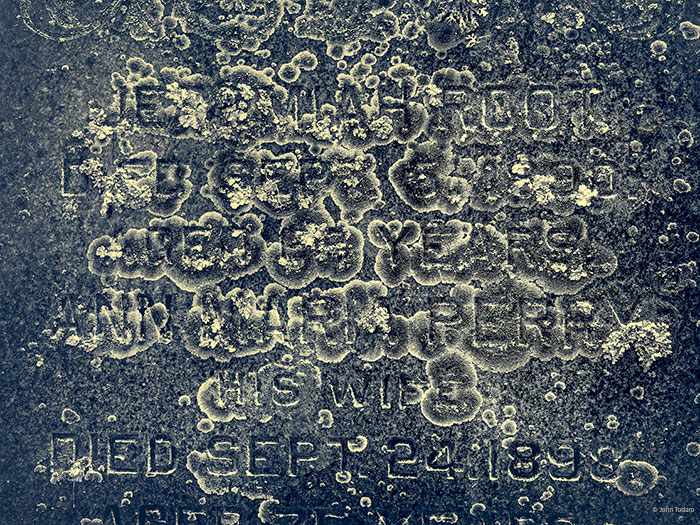 JEREMIAH ROOT
DIED SEPT.
AGED YEARS
ANN MARIA PERRY
HIS WIFE
DIED SEPT. 24, 1893
© John Todaro